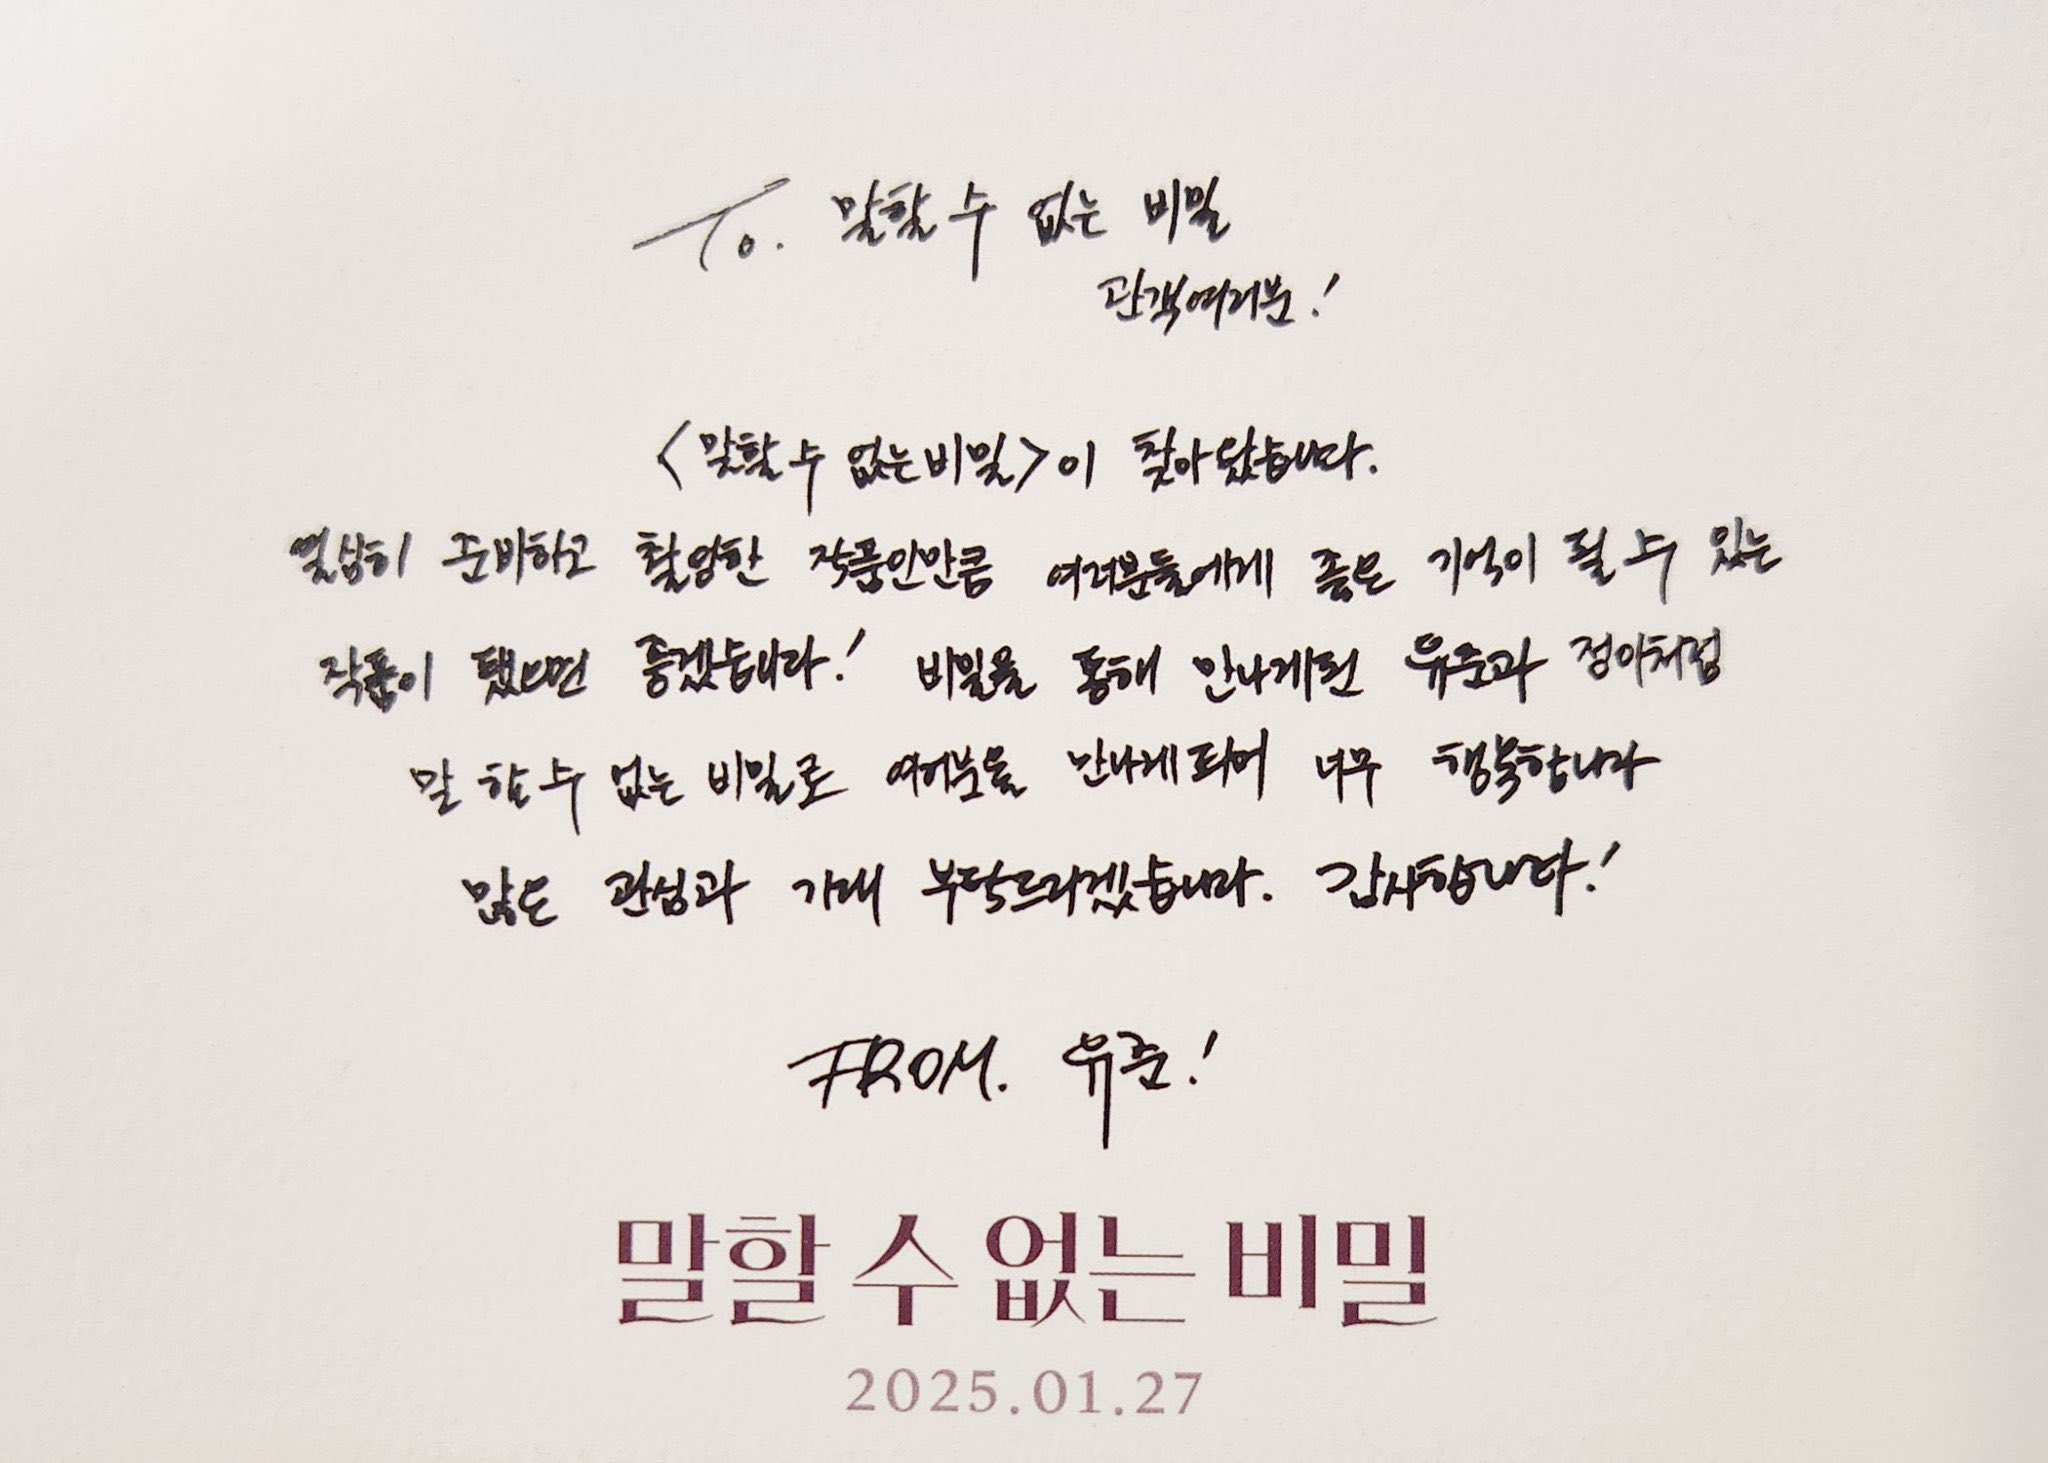 To. 말할 수 없는 비밀
관객여러분!
<말할 수 없는 비밀>이 찾아왔습니다.
열심히 준비하고 촬영한 작품인만큼 여러분들에게 좋은 기억이 될 수 있는
작품이 됐으면 좋겠습니다! 비밀을 통해 만나게된 유준과 정아처럼
말 할 수 없는 비밀로 여러분을 만나게되어 너무 행복합니다
많은 관심과 기대 부탁드리겠습니다. 감사합니다!
FROM. 유준!
말할 수 없는 비밀
2025.01.27